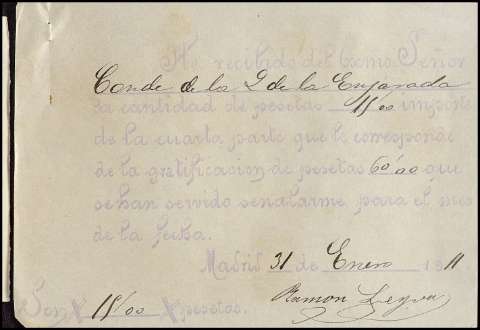 He recibido del Exmo. Señor
Conde de la Q de la Enjarada
la cantidad de pesetas 15'00 importe
de la cuarta parte que le corresponde
de la gratificacion de pesetas 60'00 que
se han servido señalarme para el mes
de la fecha.
Madrid 31 de Enero 1911
Ramon Leyva
Son # 15'00 # pesetas.